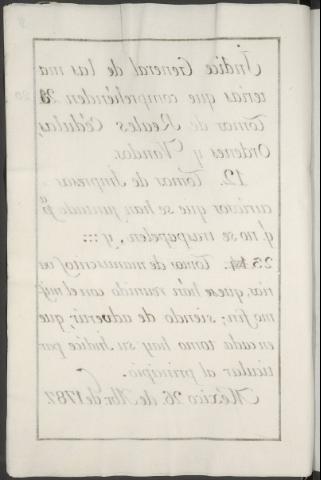 Índice General de las ma
terias que comprehenden 23
Tomos de Reales Cédulas,
Ordenes y Vandos.
12. Tomos de Impresos
curiosos que se han juntado pa
q.e no se traspapelen, y
23. Tomos de manuscritos va
rios, que se han reunido con el mis
mo fin; siendo de advertir, que
en cada tomo hay su Indice par
ticular al principio.
México 26 de Abr. de 1787.